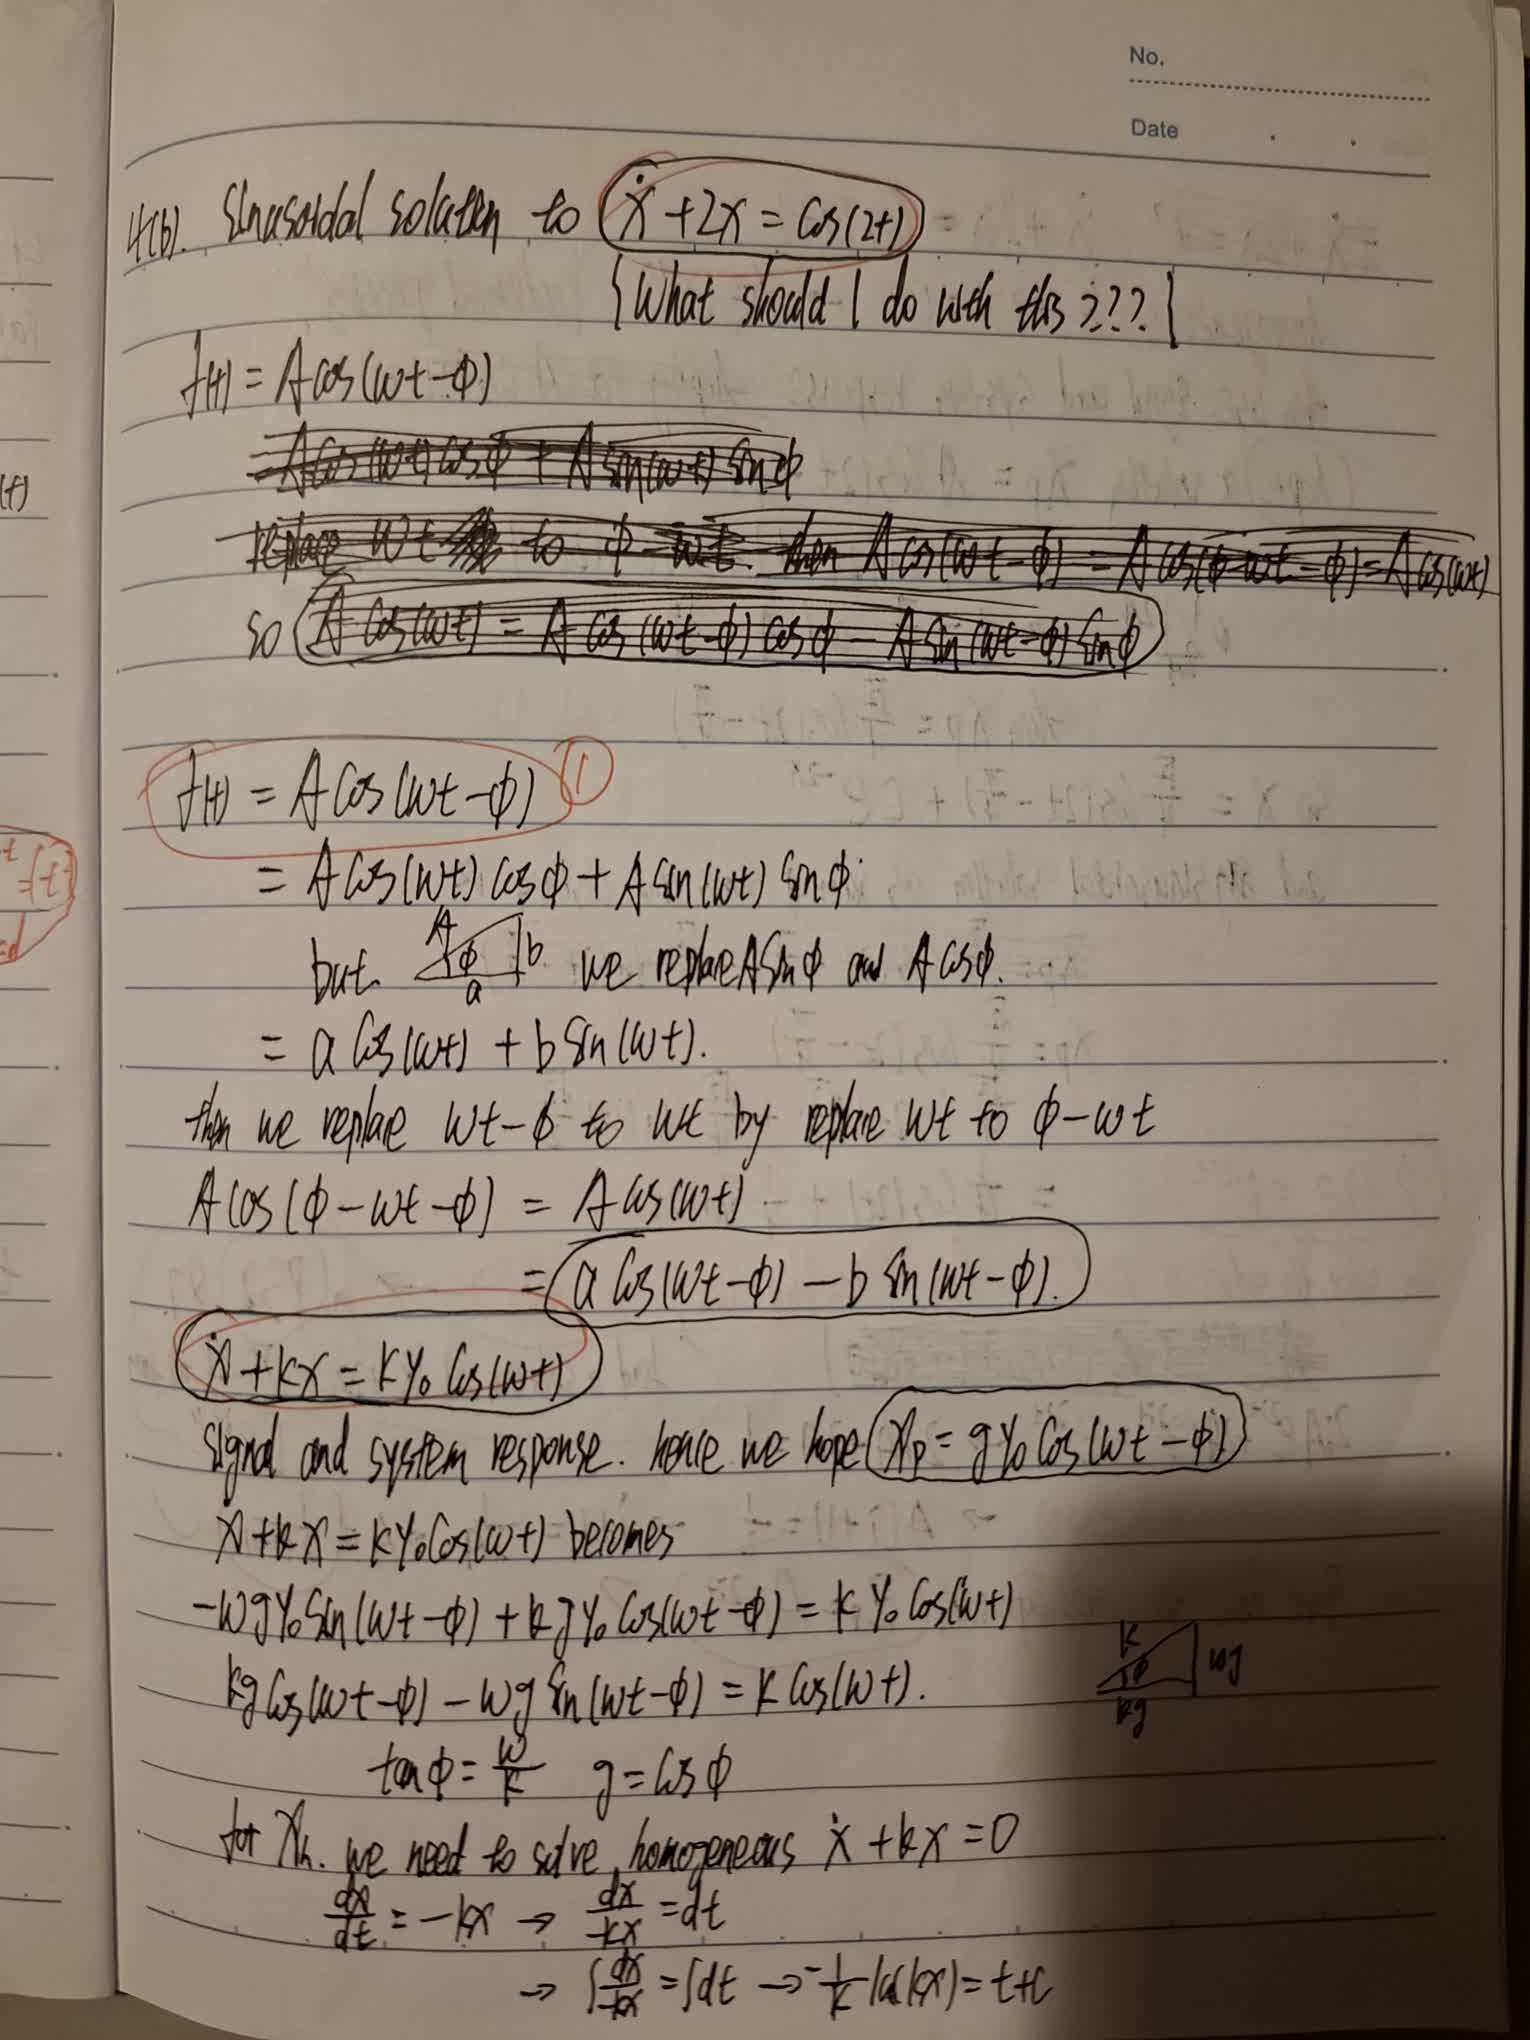 No.
Date
4(b). Sinusoidal solution to ẋ + 2x = cos(2t)
{What should I do with this ???}
f(t) = A cos(ωt - φ)
= A cos(ωt) cos φ + A sin(ωt) sin φ
replace ωt to φ - ωt. then A cos(ωt - φ) = A cos(φ - ωt - φ) = A cos(ωt)
so A cos(ωt) = A cos(ωt - φ) cos φ - A sin(ωt - φ) sin φ
f(t) = A cos(ωt - φ) ①
= A cos(ωt) cos φ + A sin(ωt) sin φ.
but. A φ a b we replace A sin φ and A cos φ.
= a cos(ωt) + b sin(ωt).
then we replace ωt - φ to ωt by replace ωt to φ - ωt
A cos(φ - ωt - φ) = A cos(ωt)
= a cos(ωt - φ) - b sin(ωt - φ).
ẋ + kx = k y₀ cos(ωt)
signal and system response. hence we hope xp = g y₀ cos(ωt - φ)
x + kx = k y₀ cos(ωt) becomes
-ω g y₀ sin(ωt - φ) + k g y₀ cos(ωt - φ) = k y₀ cos(ωt)
kg cos(ωt - φ) - ωg sin(ωt - φ) = k cos(ωt).
k φ kg ωg
tan φ = ω/k g = cos φ
for xh. we need to solve homogeneous ẋ + kx = 0
dx/dt = -kx → dx/-kx = dt
→ ∫ dx/-kx = ∫ dt → -1/k ln(kx) = t+c
(t)